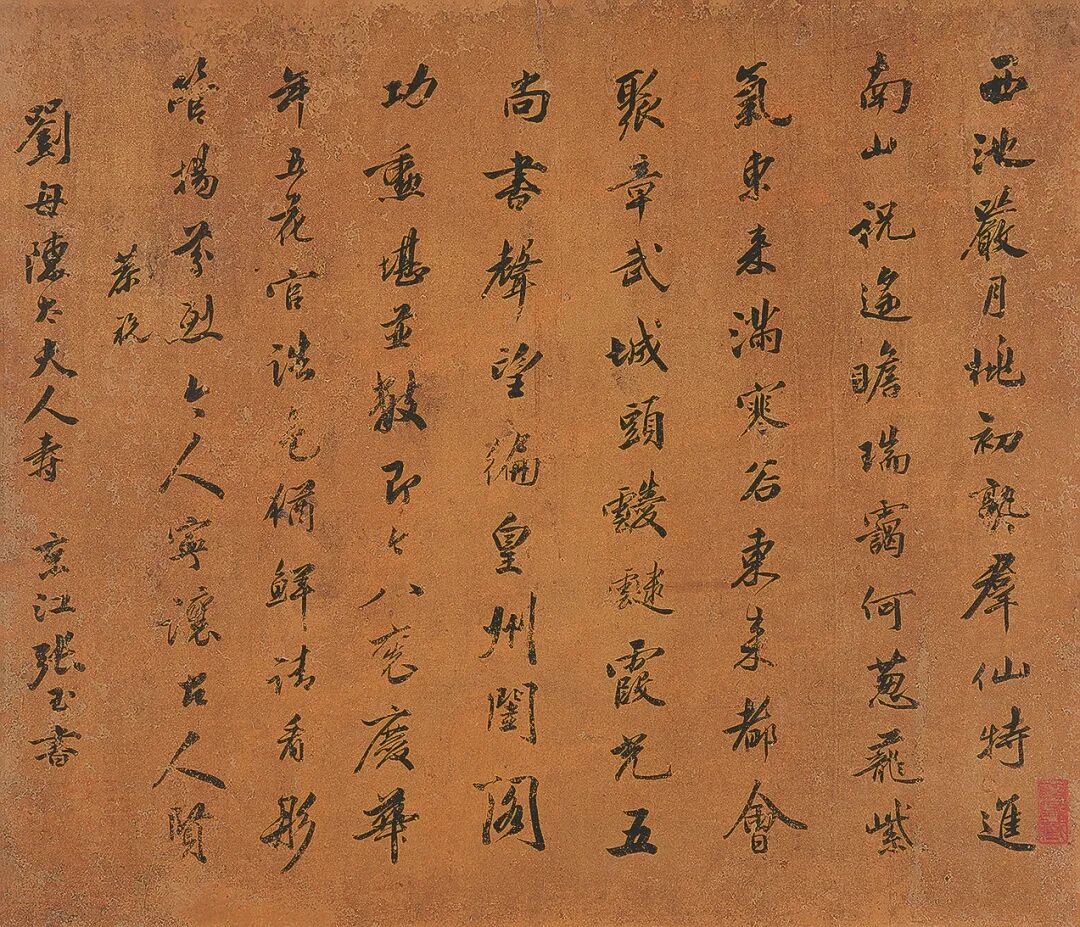 西池嚴月桃初熟羣仙特進
南山祝遥瞻瑞靄何葱蘢紫
氣東来滿寒谷東来都會
聚章武城頭靉靆霞光五
尚書聲望徧皇州閨閣
功勳堪並數即今八袠慶華
年五花官誥色猶鮮請看彤
管揚芬烈今人寧讓古人賢
恭祝
劉母陳太夫人壽 京江張玉書